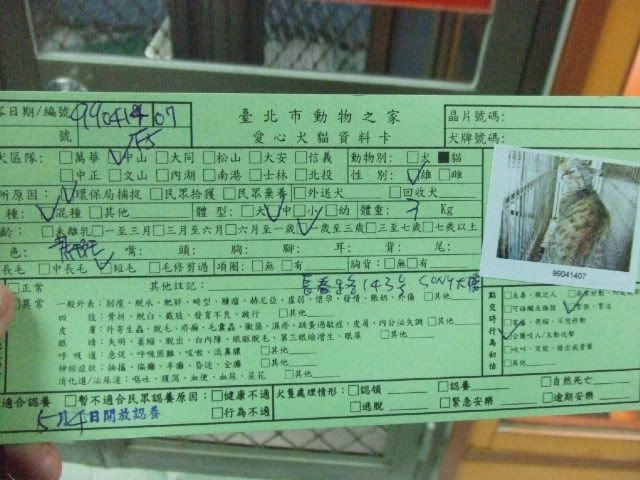 容日期/編號 99041407
號 F5
臺北市動物之家
愛心犬貓資料卡
晶片號碼:
犬牌號碼:
犬區隊: □萬華 ☑中山 □大同 □松山 □大安 □信義 動物別: □犬 ■貓
□中正 □文山 □內湖 □南港 □士林 □北投 性別: ☑雄 □雌
所原因: ☑環保局捕捉 □民眾拾獲 □民眾棄養 □外送犬 □回收犬
種: ☑混種 □其他 體型: □大 ☑中 □小 □幼 體重: 3 Kg
齡: □未離乳 □一至三月 □三月至六月 □六月至一歲 ☑一歲至三歲 □三至七歲 □七歲以上
色: 嘴: 頭: 胸: 腳: 耳: 背: 尾:
長毛 □中長毛 ☑短毛 □毛修剪過 項圈: □無 □有 胸背: □無 □有
□正常 其他註記: 143號 SONY大樓
□異常 一般外表: 削瘦、脫水、肥胖、畸型、腫瘤、赫尼亞、虛弱、懷孕、發情、脹奶、外傷 □其他
四肢: 骨折、脫臼、截肢、發育不良、跛行 □其他
皮膚: 外寄生蟲、脫毛、疥癬、毛囊蟲、黴菌、濕疹、跳蚤過敏症、皮膚、內分泌失調 □其他
眼睛: 失明、萎縮、脫出、白內障、眼瞼脫毛、第三眼瞼增生、眼屎 □其他
呼吸道: 急促、呼吸困難、咳嗽、流鼻膿 □其他
神經症狀: 抽搐、偏癱、半癱、昏迷、全癱 □其他
消化道/泌尿道: 嘔吐、腹瀉、血便、血尿、菜花 □其他
點交時行為初估
□友善、親近人
□可碰觸及撫摸 ☑緊張、警戒
□害羞、畏縮、不想移動
☑企圖咬人/主動攻擊
□吠叫、哭號、發出威脅聲
99041407
適合認養 □暫不適合民眾認養原因: □健康不適 □行為不適
5月4日開放認養
犬隻處理情形: □認領 □認養 □自然死亡
□逃脫 □緊急安樂 □逾期安樂